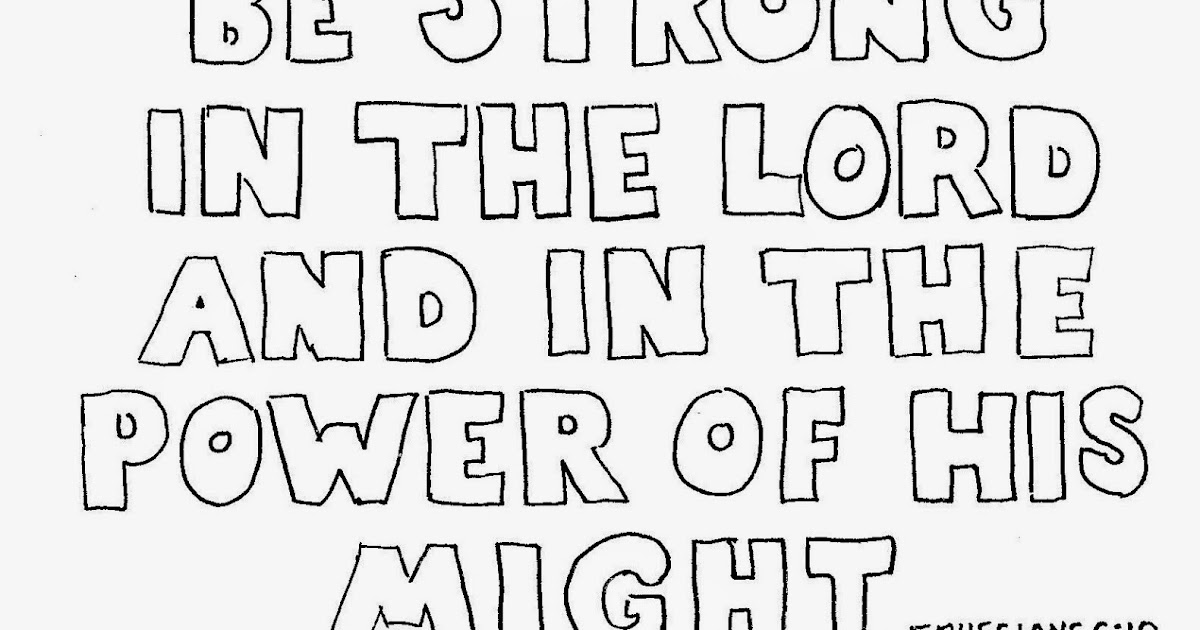 BE STRONG
IN THE LORD
AND IN THE
POWER OF HIS
MIGHT
EPHESIANS 6:10